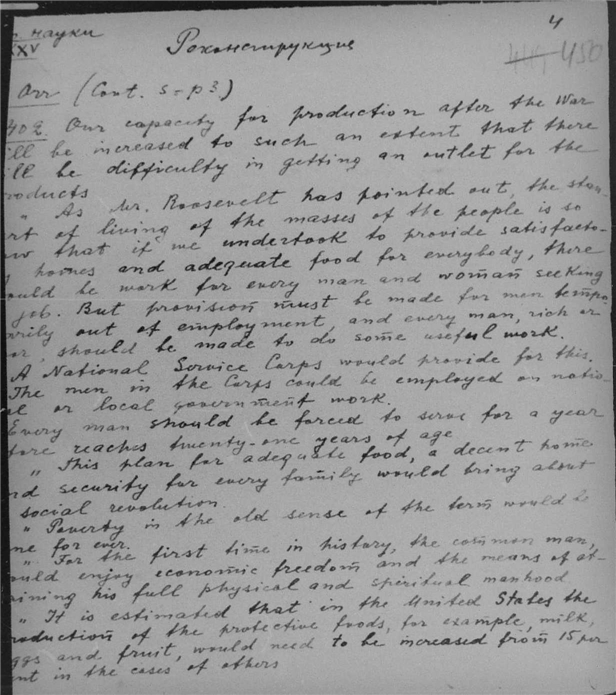 науки 4
XXV Реконструкция 450
Orr (Cont. s = p 3)
402. Our capacity for production after the War
ill be increased to such an extent that there
ill be difficulty in getting an outlet for the
roducts
" As Mr. Roosevelt has pointed out, the stan
rt of living of the masses of the people is so
ow that if we undertook to provide satisfacto-
y homes and adequate food for everybody, there
ould be work for every man and woman seeking
job. But provision must be made for men tempo
arily out of employment, and every man, rich or
or, should be made to do some useful work.
A National Service Corps would provide for this.
The men in the Corps could be employed on natio
al or local government work.
Every man should be forced to serve for a year
fore reaches twenty-one years of age
" This plan for adequate food, a decent home
nd security for every family would bring about
social revolution.
" Poverty in the old sense of the term would be
ne for ever.
" For the first time in history, the common man,
ould enjoy economic freedom and the means of at-
aining his full physical and spiritual manhood
" It is estimated that in the United States the
roduction of the protective foods, for example, milk,
ggs and fruit, would need to be increased from 15 per
ent in the cases of others